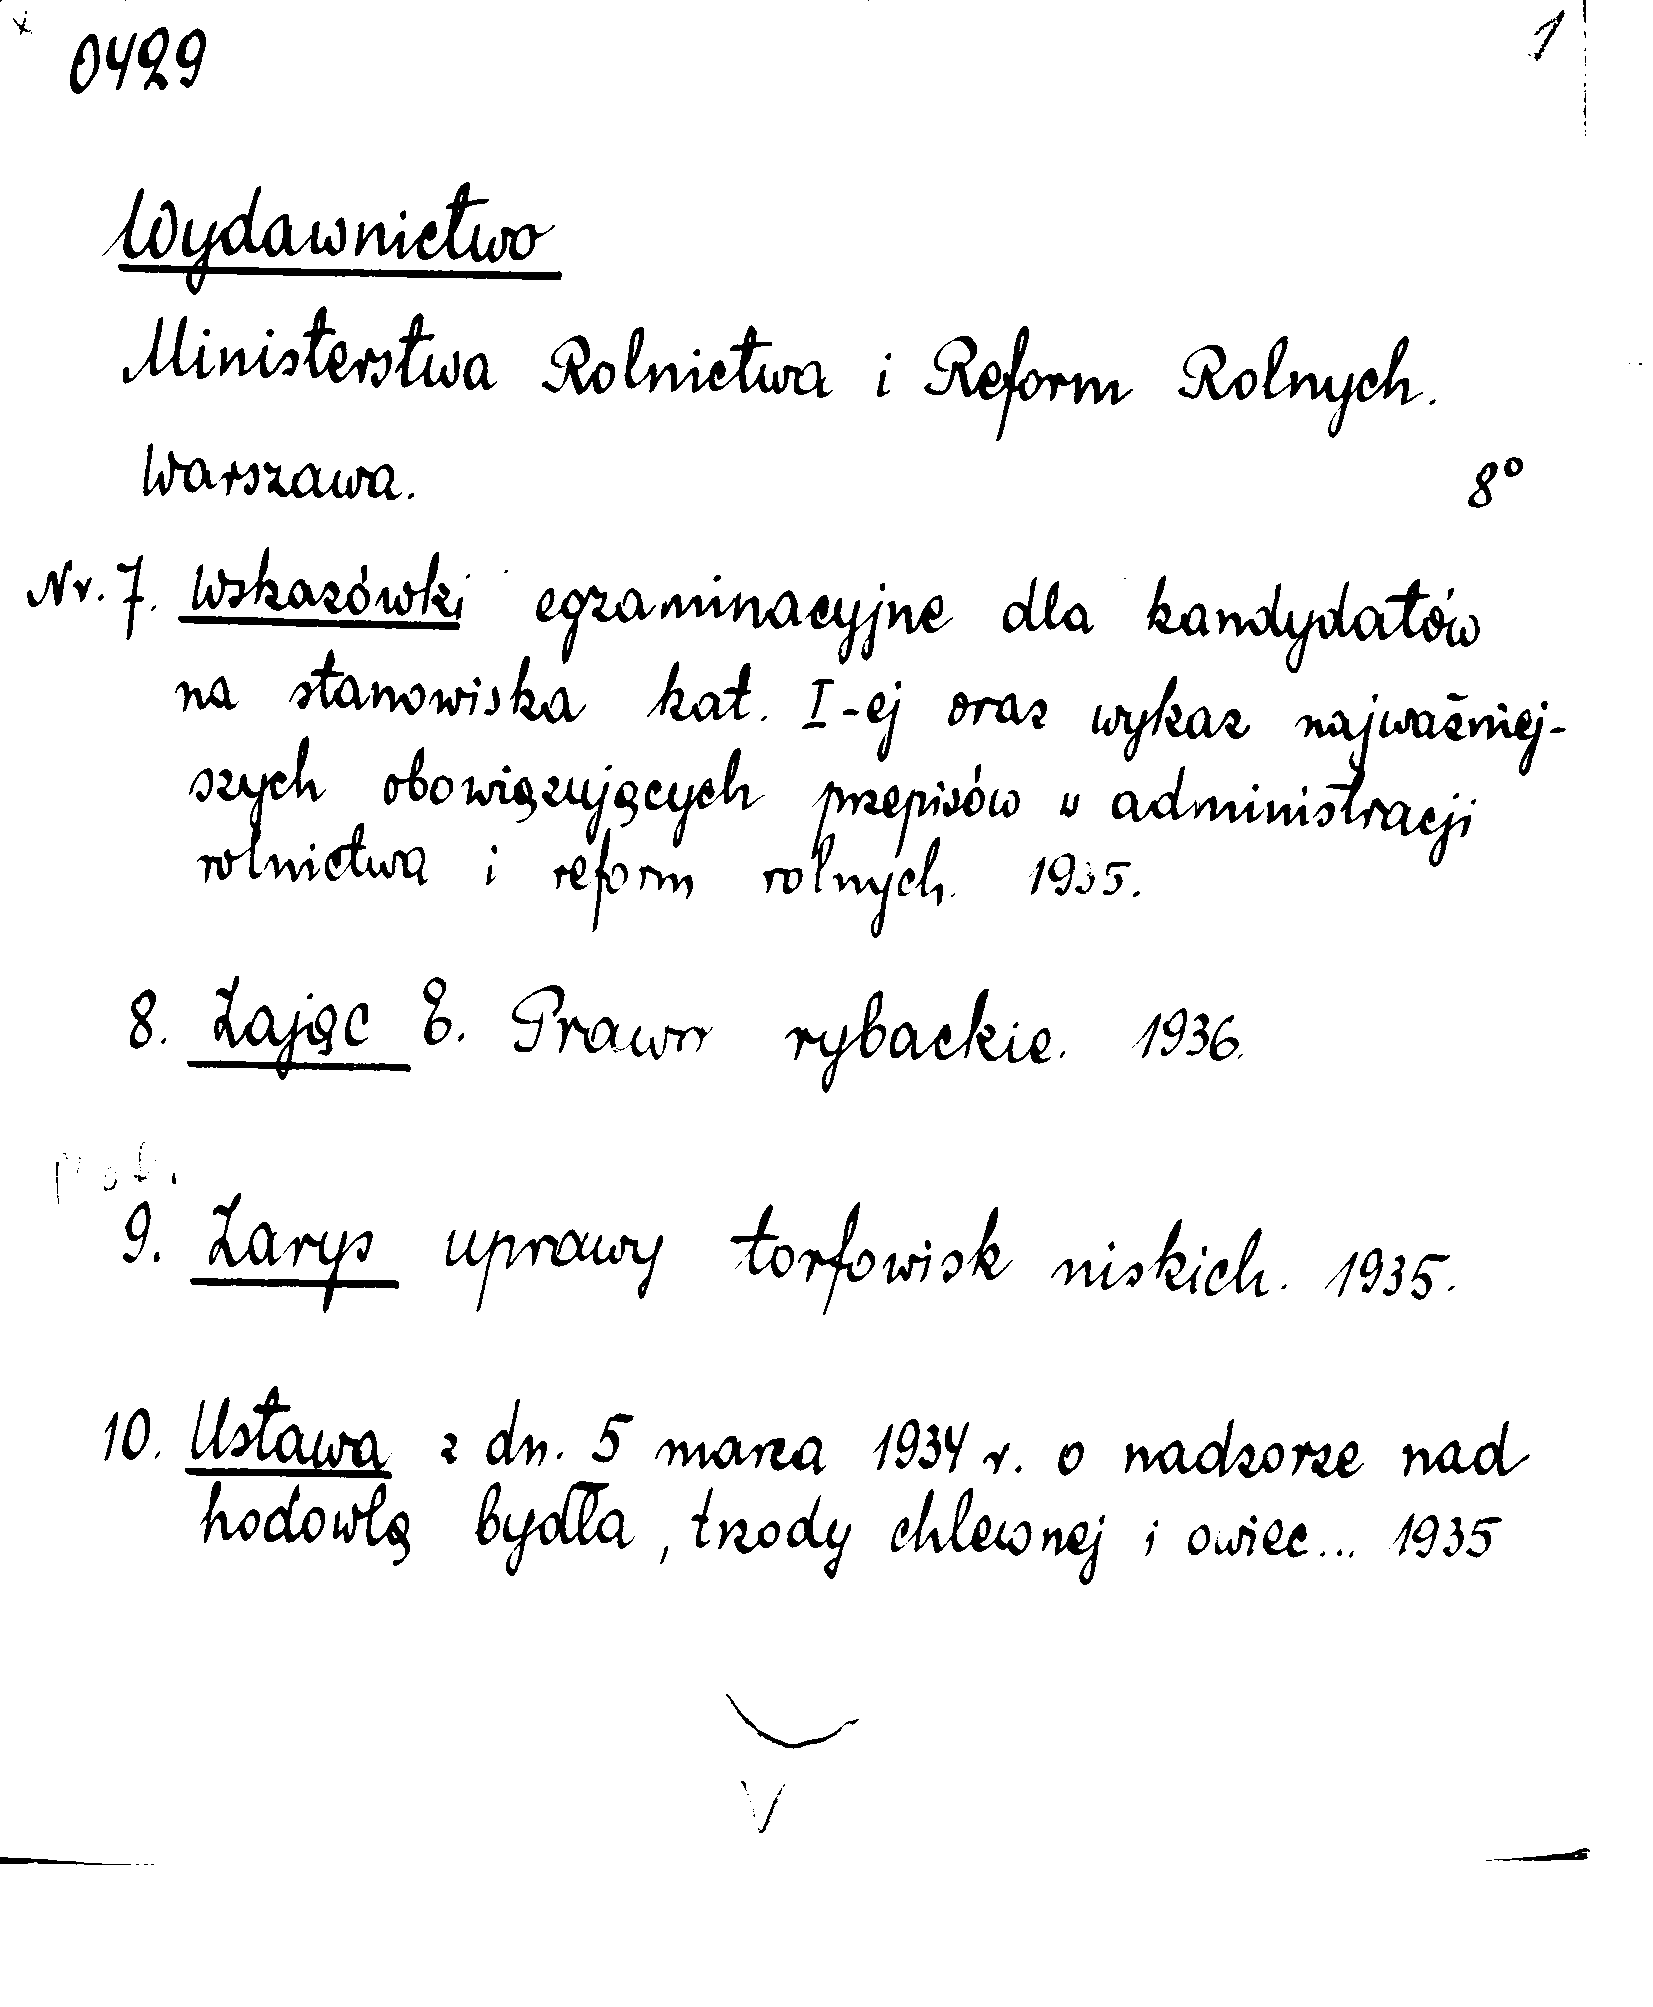 0429
1
Wydawnictwo
Ministerstwa Rolnictwa i Reform Rolnych.
Warszawa.
8°
Nr. 7. Wskazówki egzaminacyjne dla kandydatów
na stanowiska kat. I-ej oraz wykaz najważniej-
szych obowiązujących przepisów w administracji
rolnictwa i reform rolnych. 1935.
8. Zając E. Prawo rybackie. 1936.
9. Zarys uprawy torfowisk niskich. 1935.
10. Ustawa z dn. 5 marca 1934 r. o nadzorze nad
hodowlą bydła, trzody chlewnej i owiec... 1935